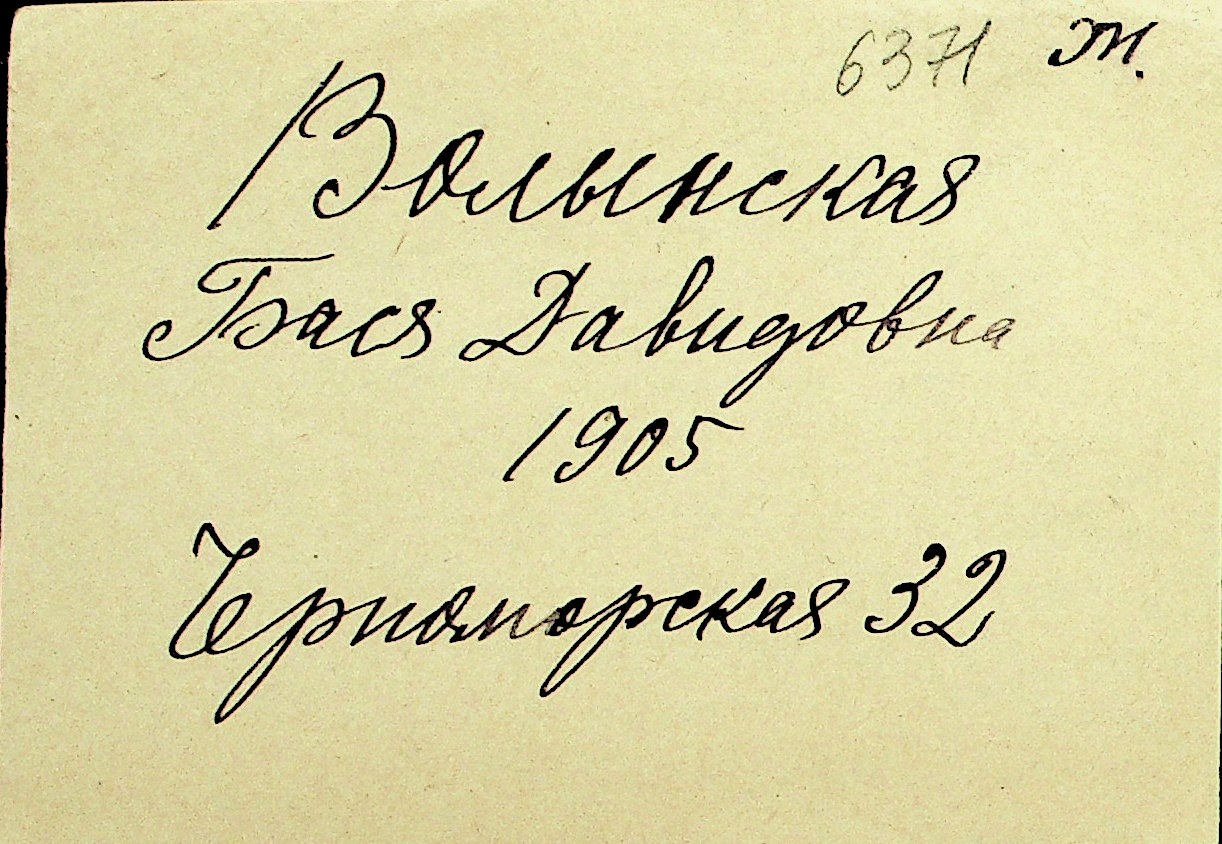 6371 Ж.
Волынская
Бася Давидовна
1905
Черноморская 32